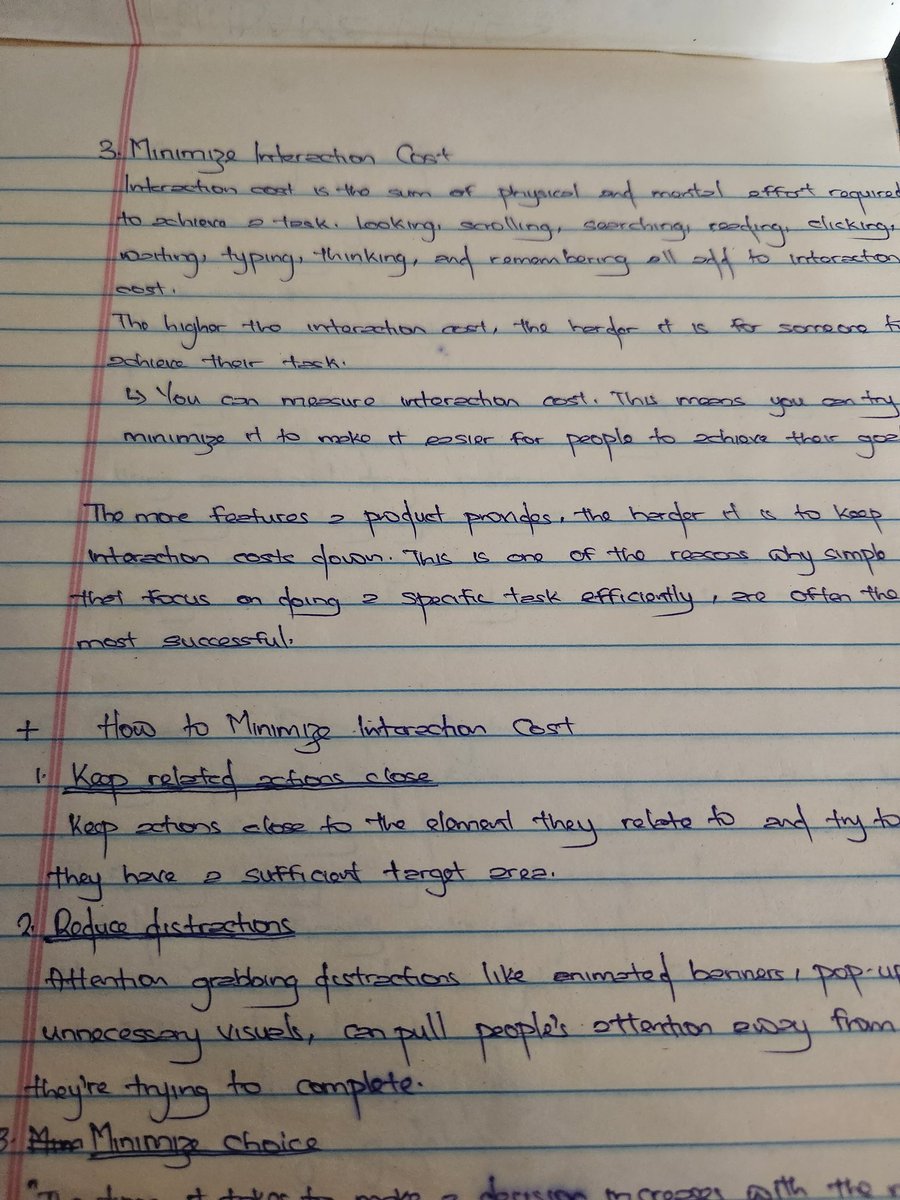 3. Minimize Interaction Cost
Interaction cost is the sum of physical and mental effort required
to achieve a task. Looking, scrolling, searching, reading, clicking,
waiting, typing, thinking, and remembering all add to interaction
cost.
The higher the interaction cost, the harder it is for someone to
achieve their task.
↳ You can measure interaction cost. This means you can try
minimize it to make it easier for people to achieve their
The more features a product provides, the harder it is to keep
interaction costs down. This is one of the reasons why simple
that focus on doing a specific task efficiently, are often the
most successful.
+ How to Minimize Interaction Cost
1. Keep related actions close
Keep actions close to the element they relate to and try to
they have a sufficient target area.
2. Reduce distractions
Attention grabbing distractions like animated banners, pop-up
unnecessary visuals, can pull people's attention away from
they're trying to complete.
3. Minimize choice
"The time it takes to make a decision increases with the